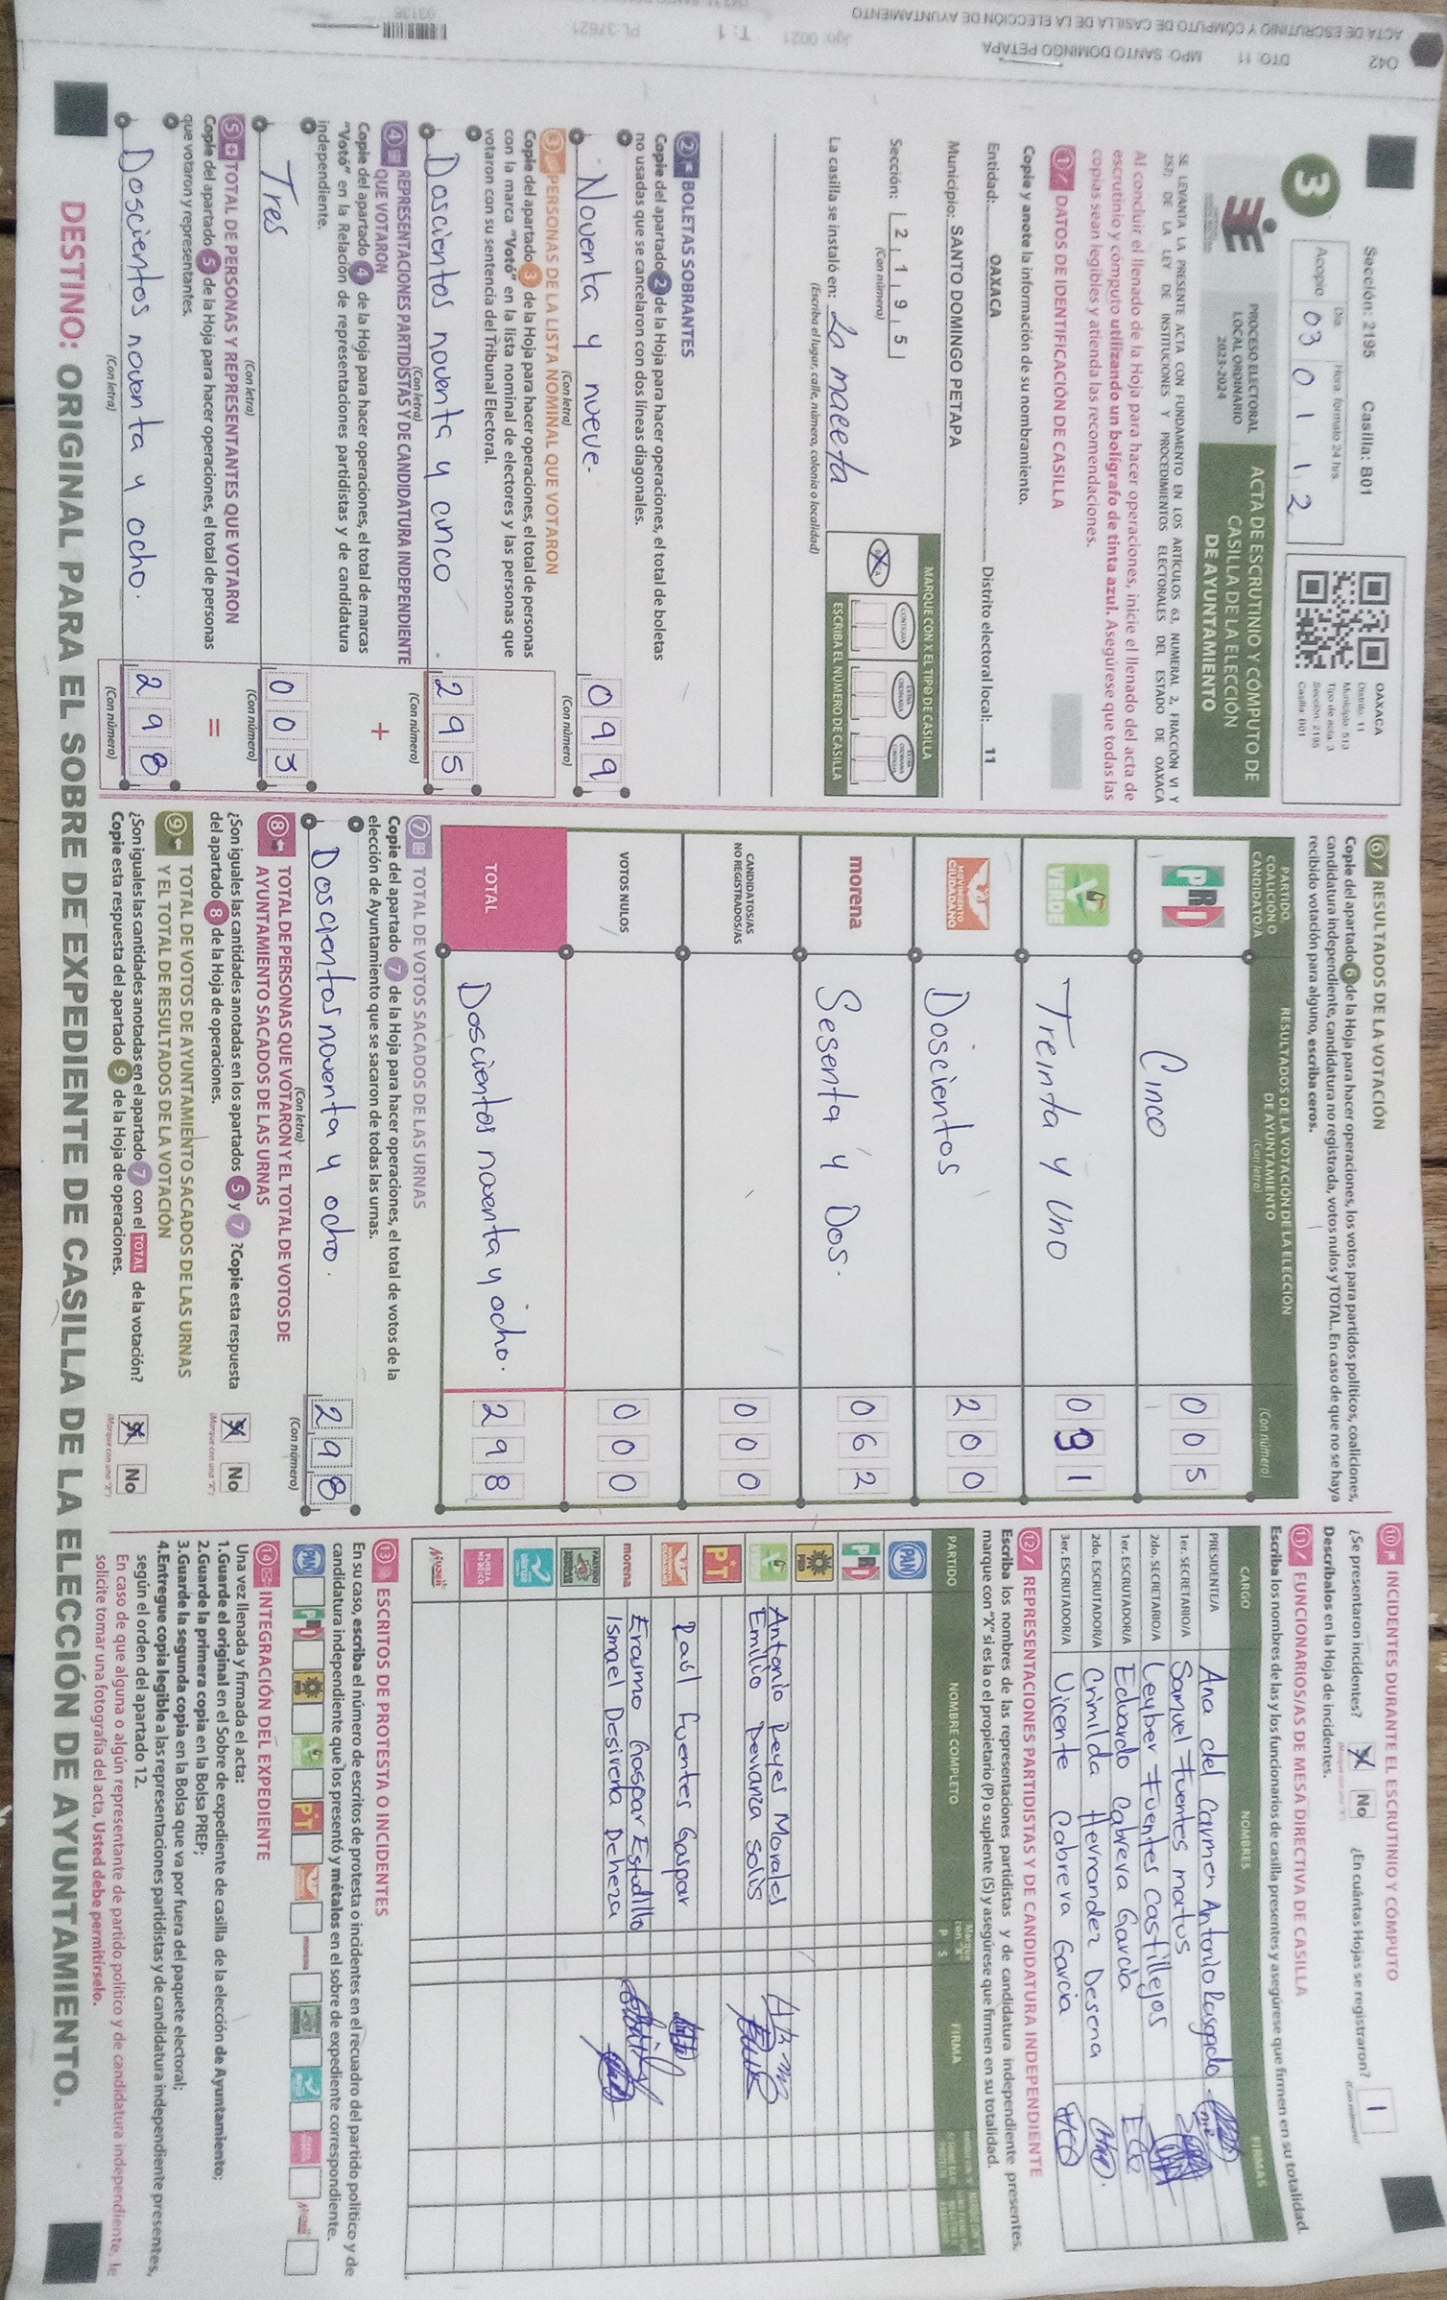 042 DTO. 11 MPO. SANTO DOMINGO PETAPA
ACTA DE ESCRUTINIO Y CÓMPUTO DE CASILLA DE LA ELECCIÓN DE AYUNTAMIENTO
T: 1
PL 37621
Sección: 2195 Casilla: B01
3
Acopio
Día
Hora formato 24 hrs.
03 01 12
OAXACA
Distrito: 11
Municipio: 513
Tipo de acta: 3
Sección: 2195
Casilla: B01
PROCESO ELECTORAL
LOCAL ORDINARIO
2023-2024
ACTA DE ESCRUTINIO Y CÓMPUTO DE
CASILLA DE LA ELECCIÓN
DE AYUNTAMIENTO
SE LEVANTA LA PRESENTE ACTA CON FUNDAMENTO EN LOS ARTÍCULOS 63, NUMERAL 2, FRACCIÓN VI Y
257; DE LA LEY DE INSTITUCIONES Y PROCEDIMIENTOS ELECTORALES DEL ESTADO DE OAXACA
Al concluir el llenado de la Hoja para hacer operaciones, inicie el llenado del acta de
escrutinio y cómputo utilizando un bolígrafo de tinta azul. Asegúrese que todas las
copias sean legibles y atienda las recomendaciones.
1 DATOS DE IDENTIFICACIÓN DE CASILLA
Copie y anote la información de su nombramiento.
Entidad: OAXACA Distrito electoral local: 11
Municipio: SANTO DOMINGO PETAPA
Sección: 2 1 9 5
(Con número)
MARQUE CON X EL TIPO DE CASILLA
ESCRIBA EL NÚMERO DE CASILLA
La casilla se instaló en: La maceta
(Escriba el lugar, calle, número, colonia o localidad)
2 BOLETAS SOBRANTES
Copie del apartado 2 de la Hoja para hacer operaciones, el total de boletas
no usadas que se cancelaron con dos líneas diagonales.
Noventa y nueve. 099
(Con letra) (Con número)
3 PERSONAS DE LA LISTA NOMINAL QUE VOTARON
Copie del apartado 3 de la Hoja para hacer operaciones, el total de personas
con la marca "Votó" en la lista nominal de electores y las personas que
votaron con su sentencia del Tribunal Electoral.
Doscientos noventa y cinco 295
(Con letra) (Con número)
4 REPRESENTACIONES PARTIDISTAS Y DE CANDIDATURA INDEPENDIENTE
QUE VOTARON +
Copie del apartado 4 de la Hoja para hacer operaciones, el total de marcas
"Votó" en la Relación de representaciones partidistas y de candidatura
independiente.
Tres 003
(Con letra) (Con número)
5 TOTAL DE PERSONAS Y REPRESENTANTES QUE VOTARON =
Copie del apartado 5 de la Hoja para hacer operaciones, el total de personas
que votaron y representantes.
Doscientos noventa y ocho. 298
(Con letra) (Con número)
6 RESULTADOS DE LA VOTACIÓN
Copie del apartado 6 de la Hoja para hacer operaciones, los votos para partidos políticos, coaliciones,
candidatura independiente, candidatura no registrada, votos nulos y TOTAL. En caso de que no se haya
recibido votación para alguno, escriba ceros.
PARTIDO
COALICIÓN O
CANDIDATO/A
RESULTADOS DE LA VOTACIÓN DE LA ELECCIÓN
DE AYUNTAMIENTO
(Con letra)
(Con número)
PRI Cinco 005
VERDE Treinta y Uno 031
MOVIMIENTO CIUDADANO Doscientos 200
morena Sesenta y Dos. 062
CANDIDATOS/AS
NO REGISTRADOS/AS 000
VOTOS NULOS 000
TOTAL Doscientos noventa y ocho. 298
7 TOTAL DE VOTOS SACADOS DE LAS URNAS
Copie del apartado 7 de la Hoja para hacer operaciones, el total de votos de la
elección de Ayuntamiento que se sacaron de todas las urnas.
Doscientos noventa y ocho. 298
(Con letra) (Con número)
8 TOTAL DE PERSONAS QUE VOTARON Y EL TOTAL DE VOTOS DE
AYUNTAMIENTO SACADOS DE LAS URNAS
¿Son iguales las cantidades anotadas en los apartados 5 y 7 ? Copie esta respuesta
del apartado 8 de la Hoja de operaciones.
Sí No
(Marque con una "X")
9 TOTAL DE VOTOS DE AYUNTAMIENTO SACADOS DE LAS URNAS
Y EL TOTAL DE RESULTADOS DE LA VOTACIÓN
¿Son iguales las cantidades anotadas en el apartado 7 con el TOTAL de la votación?
Copie esta respuesta del apartado 9 de la Hoja de operaciones.
Sí No
(Marque con una "X")
10 INCIDENTES DURANTE EL ESCRUTINIO Y CÓMPUTO
¿Se presentaron incidentes? Sí No ¿En cuántas Hojas se registraron? 1
Descríbalos en la Hoja de incidentes.
11 FUNCIONARIOS/AS DE MESA DIRECTIVA DE CASILLA
Escriba los nombres de las y los funcionarios de casilla presentes y asegúrese que firmen en su totalidad.
CARGO NOMBRES FIRMAS
PRESIDENTE/A Ana del Carmen Antonio Rasgado
1er. SECRETARIO/A Samuel Fuentes matus
2do. SECRETARIO/A Leyber Fuentes Castillejos
1er. ESCRUTADOR/A Eduardo Cabrera García
2do. ESCRUTADOR/A Crimilda Hernandez Desena
3er. ESCRUTADOR/A Vicente Cabrera Garcia
12 REPRESENTACIONES PARTIDISTAS Y DE CANDIDATURA INDEPENDIENTE
Escriba los nombres de las representaciones partidistas y de candidatura independiente presentes,
marque con "X" si es la o el propietario (P) o suplente (S) y asegúrese que firmen en su totalidad.
PARTIDO NOMBRE COMPLETO P S FIRMA
PAN
PRI
PRD
VERDE Antonio Reyes Morales
Emilio Devanza Solis
PT
Raul Fuentes Gaspar
morena Erasmo Gaspar Estudillo
Ismael Desirena Deheza
13 ESCRITOS DE PROTESTA O INCIDENTES
En su caso, escriba el número de escritos de protesta o incidentes en el recuadro del partido político y de
candidatura independiente que los presentó y métalos en el sobre de expediente correspondiente.
14 INTEGRACIÓN DEL EXPEDIENTE
Una vez llenada y firmada el acta:
1.Guarde el original en el Sobre de expediente de casilla de la elección de Ayuntamiento;
2.Guarde la primera copia en la Bolsa PREP;
3.Guarde la segunda copia en la Bolsa que va por fuera del paquete electoral;
4.Entregue copia legible a las representaciones partidistas y de candidatura independiente presentes,
según el orden del apartado 12.
En caso de que alguna o algún representante de partido político y de candidatura independiente, le
solicite tomar una fotografía del acta, Usted debe permitírselo.
DESTINO: ORIGINAL PARA EL SOBRE DE EXPEDIENTE DE CASILLA DE LA ELECCIÓN DE AYUNTAMIENTO.